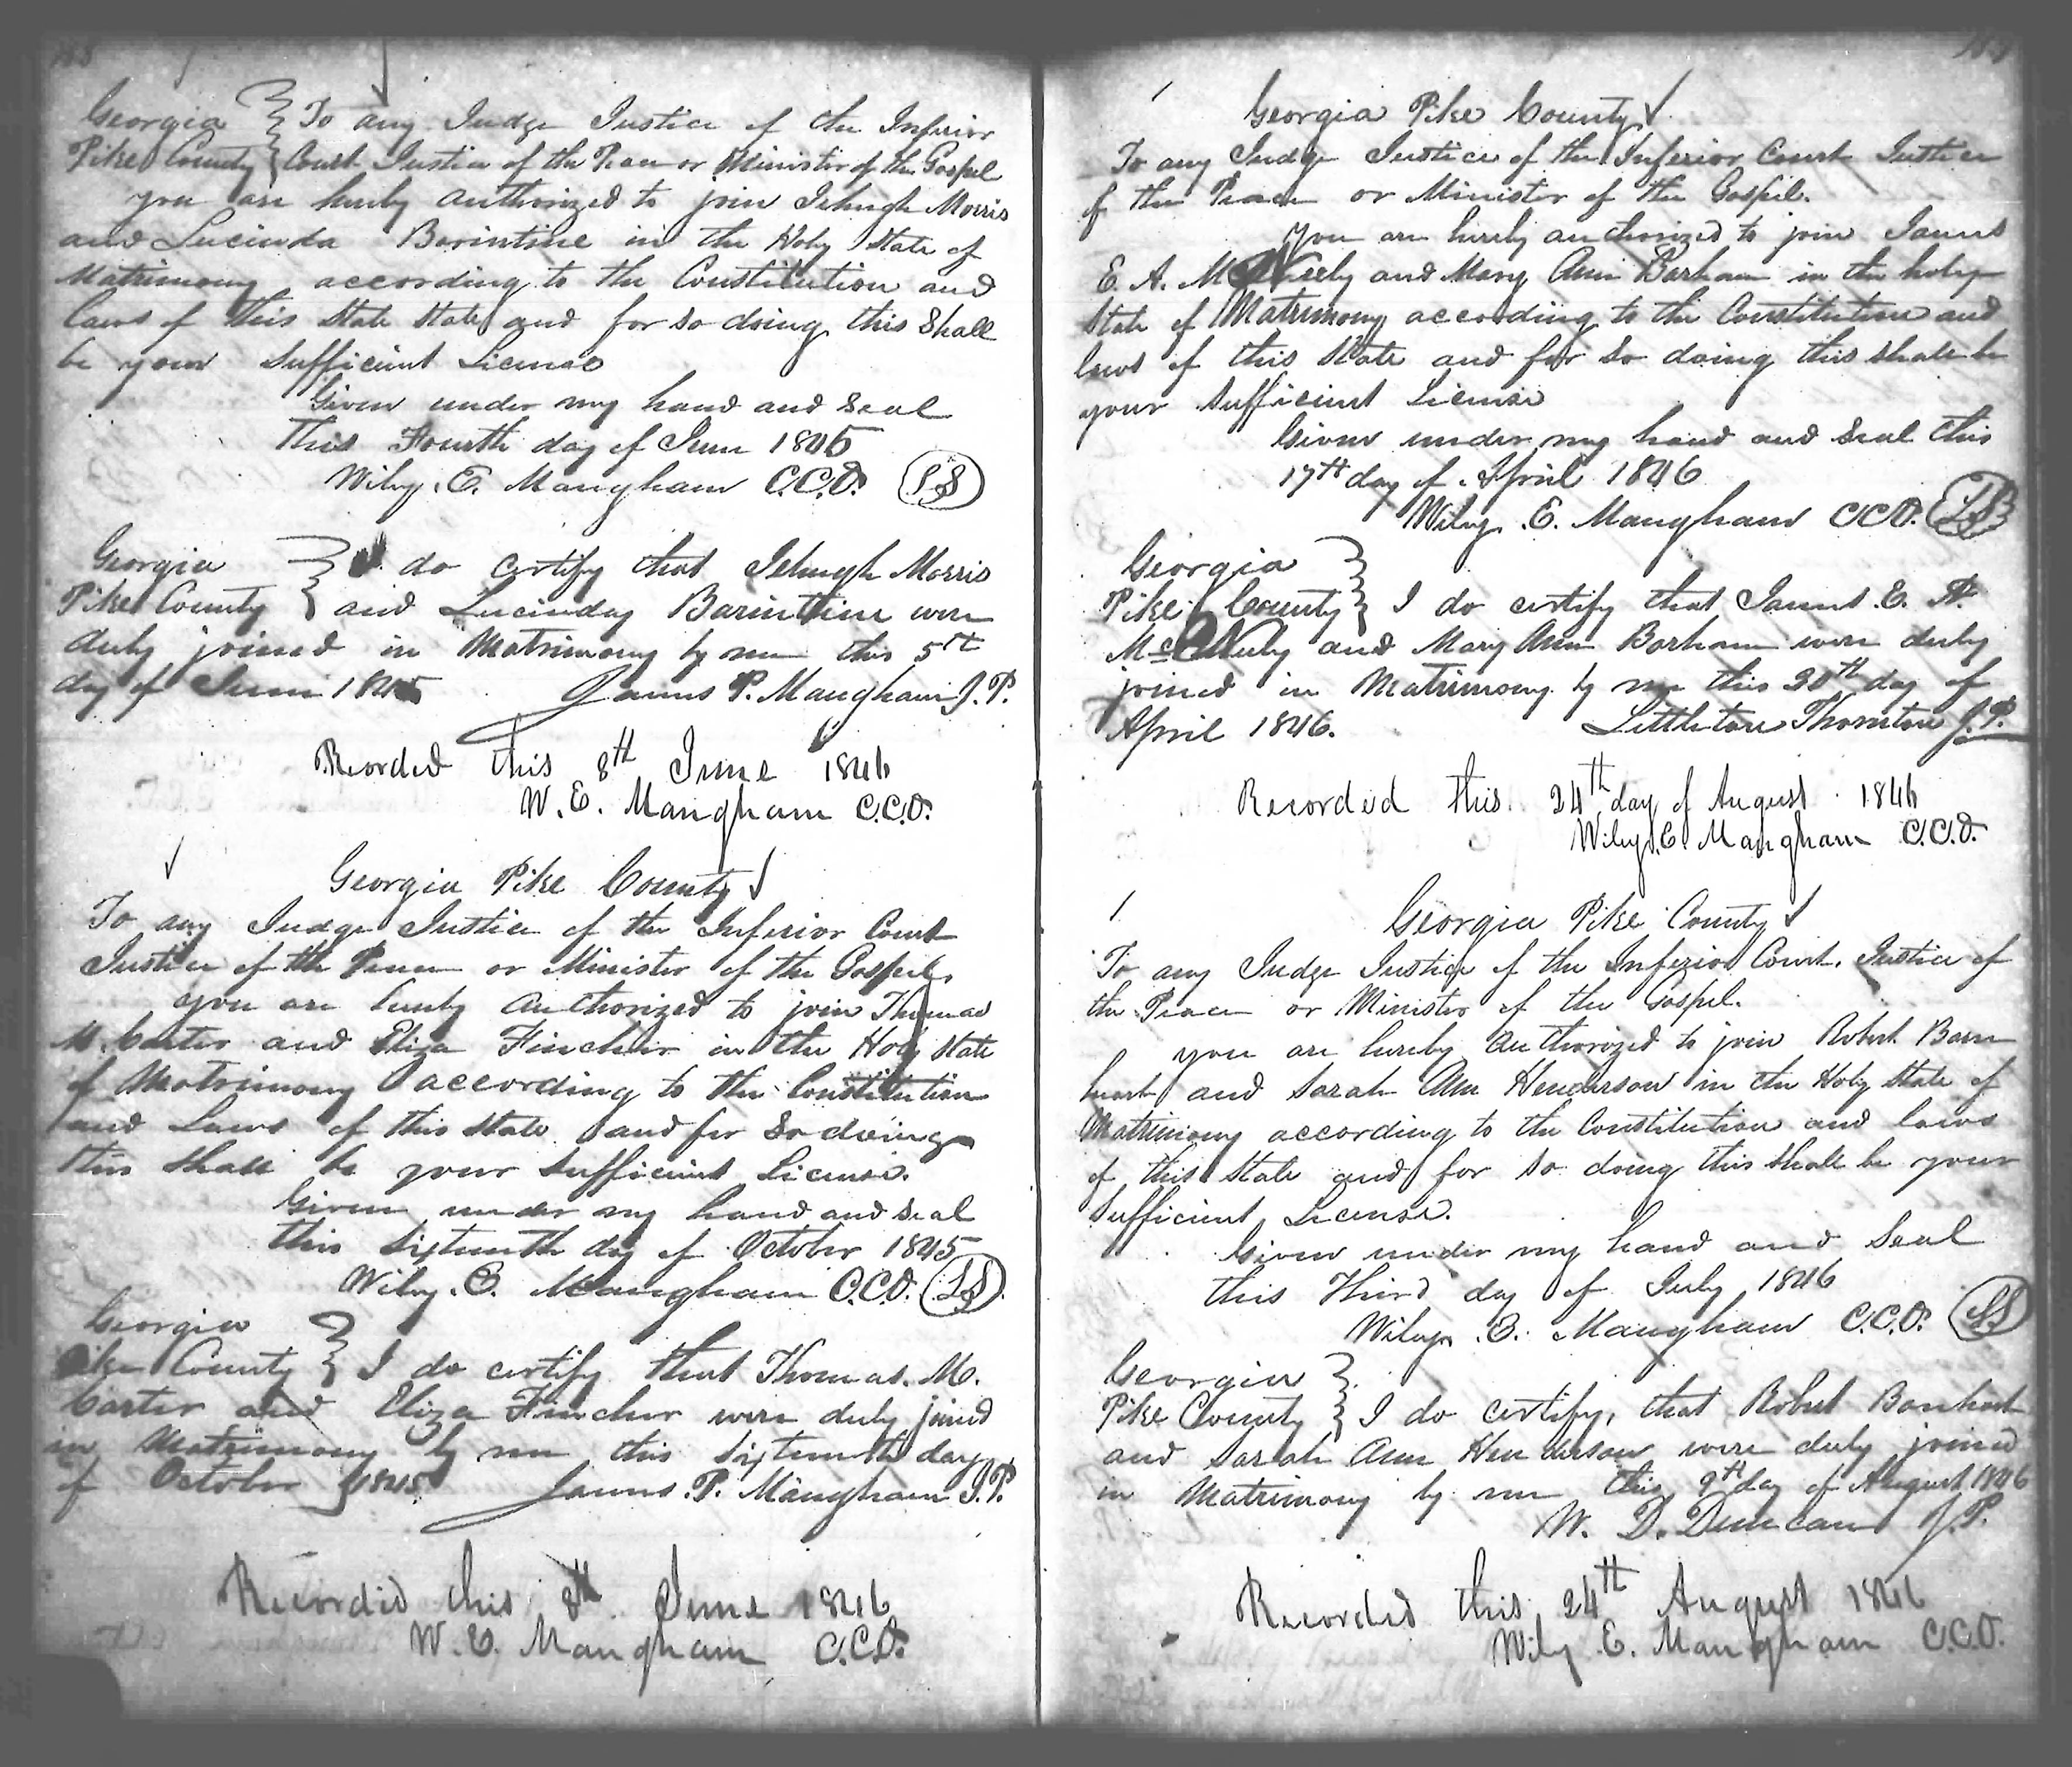 188
Georgia } To any Judge Justice of the Inferior
Pike County } Court Justice of the Peace or Minister of the Gospel
you are hereby authorized to join Jehugh Morris
and Lucinda Barintine in the Holy State of
Matrimony according to the Constitution and
laws of this State State and for so doing this Shall
be your Sufficient License
Given under my hand and Seal
this Fourth day of June 1845
Wiley. E. Mangham C.C.O. (LS)
Georgia } I do certify that Jehugh Morris
Pike County } and Lucinday Barintine were
duly joined in Matrimony by me this 5th
day of June 1845 James P. Mangham J.P.
Recorded this 8th June 1846
W. E. Mangham C.C.O.
Georgia Pike County
To any Judge Justice of the Inferior Court
Justice of the Peace or Minister of the Gospel.
you are hereby authorized to join Thomas
M. Carter and Eliza Fincher in the Holy State
of Matrimony according to the Constitution
and Laws of this State and for So doing
this Shall be your Sufficient License.
Given under my hand and Seal
this Sixteenth day of October 1845
Wiley. E. Mangham C.C.O. (LS)
Georgia }
Pike County } I do certify that Thomas. M.
Carter and Eliza Fincher were duly joined
in Matrimony by me this Sixteenth day
of October 1845 James. P. Mangham J.P.
Recorded this 8th June 1846
W. E. Mangham C.C.O.
189
Georgia Pike County
To any Judge Justice of the Inferior Court Justice
of the Peace or Minister of the Gospel.
You are hereby authorized to join James
E. A. McNeely and Mary Ann Barham in the holy
State of Matrimony according to the Constitution and
laws of this State and for So doing this shall be
your Sufficient License
Given under my hand and Seal this
17th day of April 1846
Wiley. E. Mangham C.C.O. (LS)
Georgia }
Pike County } I do certify that James. E. A.
McNeely and Mary Ann Barham were duly
joined in Matrimony by me this 30th day of
April 1846. Littleton Thornton J.P.
Recorded this 24th day of August 1846
Wiley. E. Mangham C.C.O.
Georgia Pike County
To any Judge Justice of the Inferior Court. Justice of
the Peace or Minister of the Gospel.
you are hereby authorized to join Robert Barn
heart and Sarah Ann Henderson in the Holy State of
Matrimony according to the Constitution and laws
of this State and for so doing this shall be your
Sufficient License.
Given under my hand and Seal
this Third day of July 1846
Wiley. E. Mangham C.C.O. (LS)
Georgia }
Pike County } I do certify, that Robert Barnhart
and Sarah Ann Henderson were duly joined
in Matrimony by me this 9th day of August 1846
W. D. Duncan J.P.
Recorded this 24th August 1846
Wily E. Mangham C.C.O.